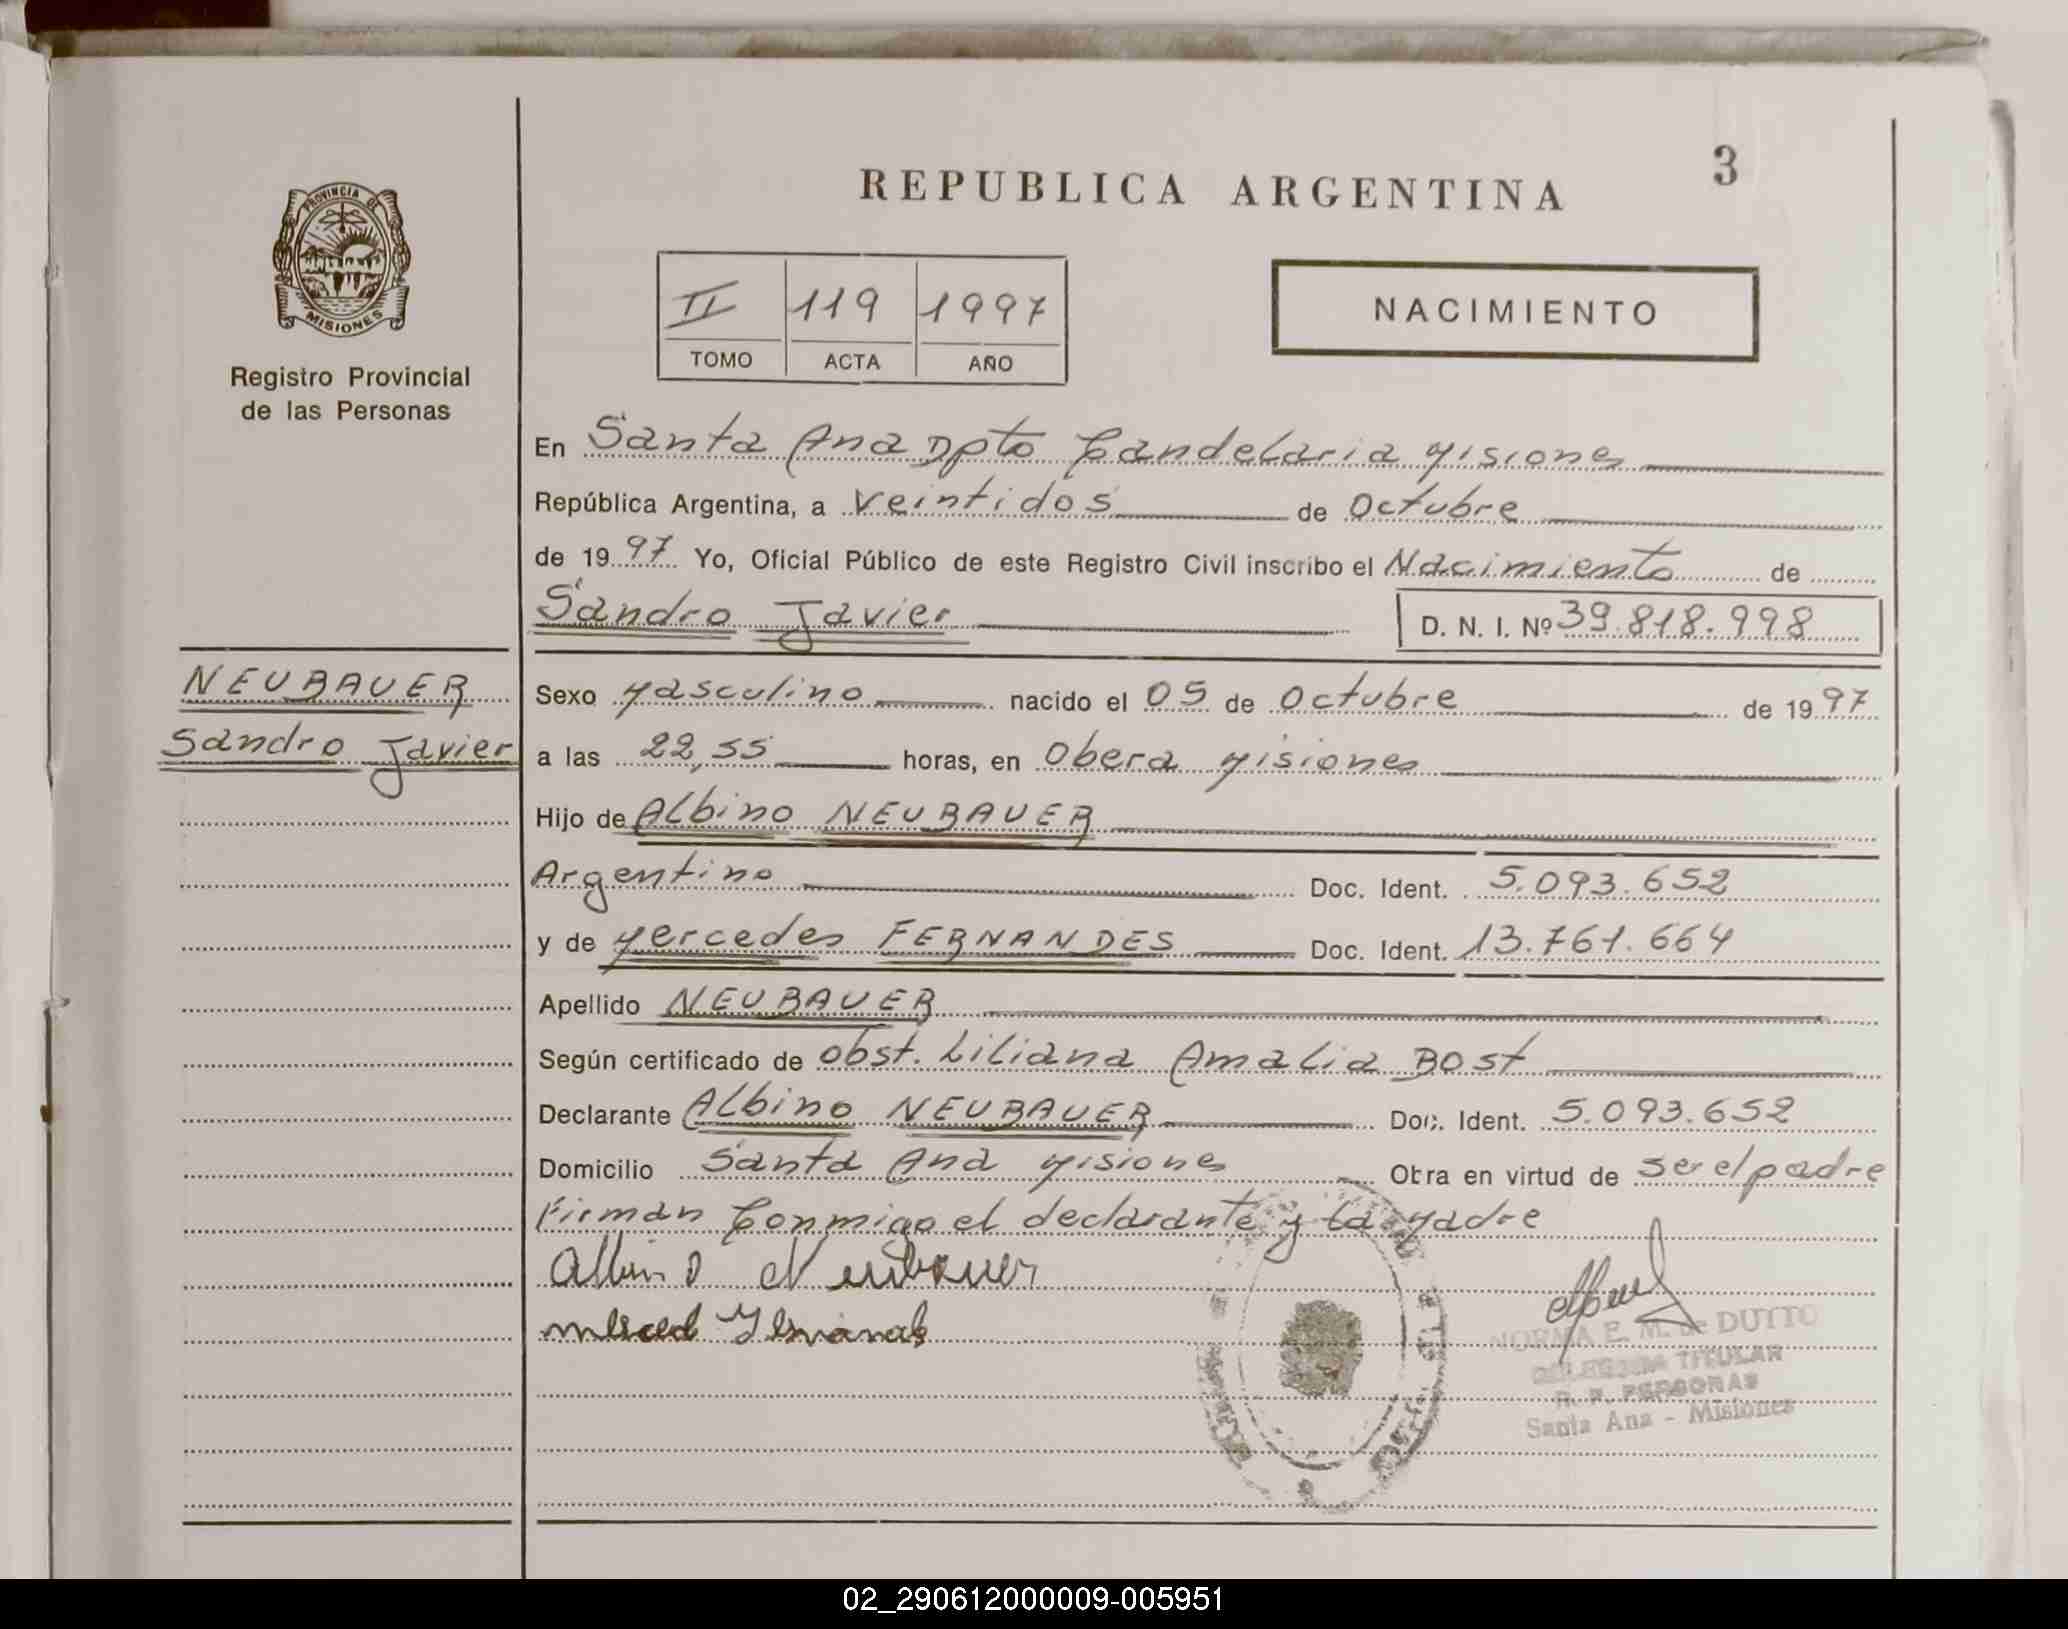 REPUBLICA ARGENTINA
3
PROVINCIA DE
MISIONES
Registro Provincial
de las Personas
II 119 1997
TOMO ACTA AÑO
NACIMIENTO
En Santa Ana Dpto Candelaria Misiones
República Argentina, a veintidos de Octubre
de 1997 Yo, Oficial Público de este Registro Civil inscribo el Nacimiento de
Sandro Javier D. N. I. Nº 39.818.998
NEUBAUER
Sandro Javier
Sexo Masculino nacido el 05 de Octubre de 1997
a las 22,55 horas, en Obera Misiones
Hijo de Albino NEUBAUER
Argentino Doc. Ident. 5.093.652
y de Mercedes FERNANDES Doc. Ident. 13.761.664
Apellido NEUBAUER
Según certificado de Obst. Liliana Amalia Bost
Declarante Albino NEUBAUER Doc. Ident. 5.093.652
Domicilio Santa Ana Misiones Obra en virtud de ser el padre
Firman Conmigo el declarante y la Madre
Albino Neubauer
NORMA E. M. de DUTTO
DELEGADA TITULAR
R. P. PERSONAS
Santa Ana - Misiones
02_290612000009-005951